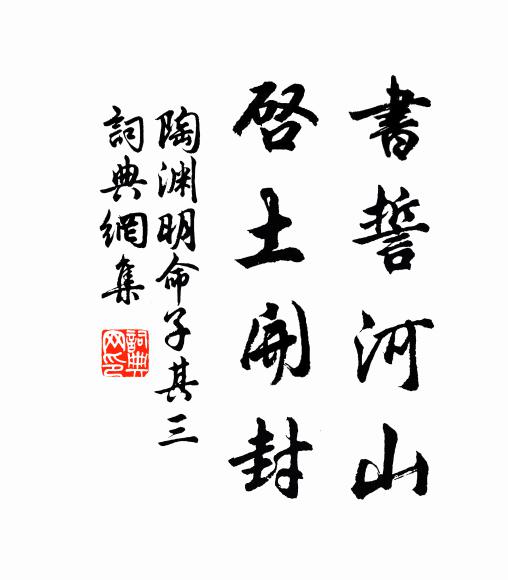 書誓河山
啓土開封
陶渊明命子其三
詞典網集
詞典網印